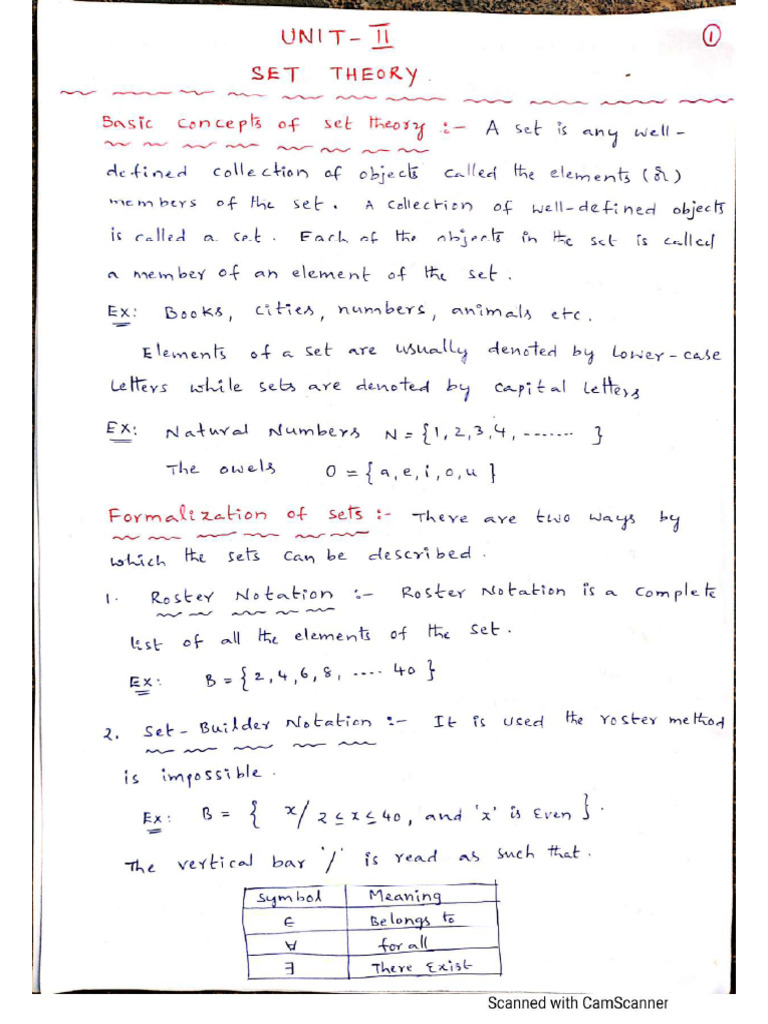 UNIT-II
①
SET THEORY.
Basic concepts of set theory :- A set is any well-
defined collection of objects called the elements (or)
members of the set. A collection of well-defined objects
is called a set. Each of the objects in the set is called
a member of an element of the set.
Ex: Books, cities, numbers, animals etc.
Elements of a set are usually denoted by lower-case
letters while sets are denoted by capital letters
Ex: Natural Numbers N = {1,2,3,4, ....... }
The owels O = {a,e,i,o,u}
Formalization of sets :- There are two ways by
which the sets can be described.
1. Roster Notation :- Roster Notation is a complete
list of all the elements of the set.
Ex: B = {2,4,6,8, .... 40}
2. Set-Builder Notation :- It is used the roster method
is impossible.
Ex: B = { x/ 2≤x≤40, and 'x' is Even }.
The vertical bar '/' is read as such that.
Symbol Meaning
∈ Belongs to
∀ for all
∃ There Exist
Scanned with CamScanner